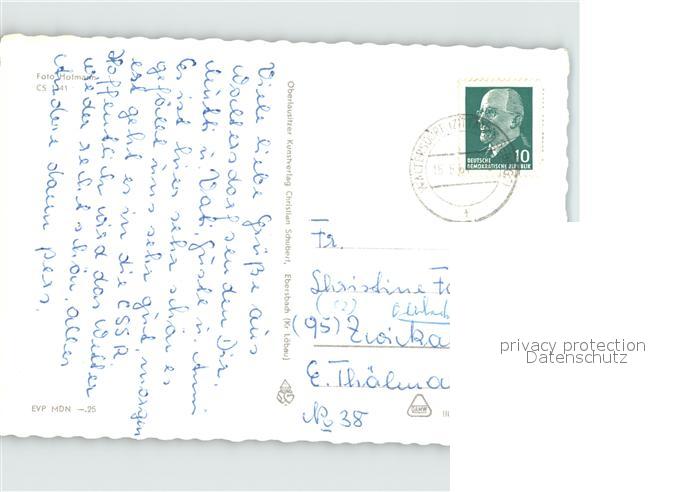 Foto Hofmann
CS 41
Viele liebe Grüße aus
Waltersdorf senden Dir
Mutti u. Vati, Gusti u. Anni
Es ist hier sehr schön es
gefällt uns sehr gut, morgen
geht es in die CSSR
Hoffentlich wird das Wetter
wieder recht schön, alles
andere dann pers.
Oberlausitzer Kunstverlag Christian Schubert, Ebersbach (Kr Löbau)
EVP MDN —.25
WALTERSDORF (ZITTAU
DEUTSCHE 10
DEMOKRATISCHE REPUBLIK
Fr.
Christine
(95) Zwicka
E. Thälma
No 38
privacy protection
Datenschutz